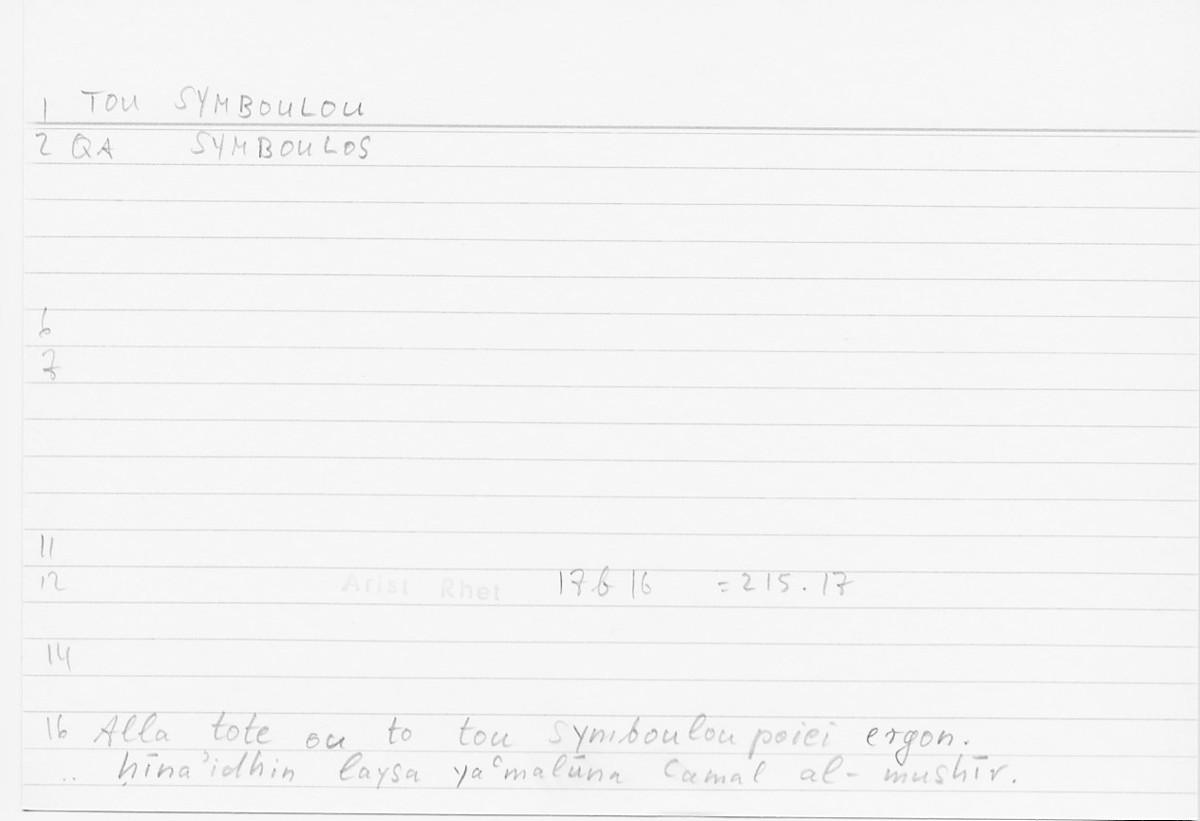 1 TOU SYMBOULOU
2 QA SYMBOULOS
6
7
11
12 Arist Rhet 17b16 =215.17
14
16 Alla tote ou to tou symboulou poiei ergon.
.. ḥīnaʾidhin laysa yaʿmalūna ʿamal al-mushīr.